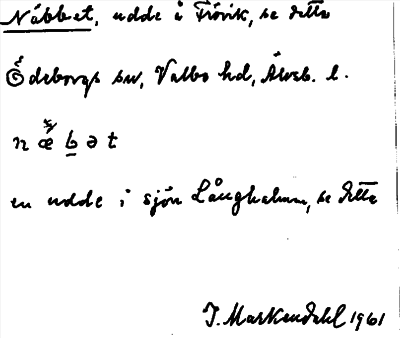 Näbbet, udde å Frövik, se detta
Ödeborgs sn, Valbo hd, Älvsb. l.
n æ b ə t
en udde i sjön Långhalmen, se detta
J. Markendahl 1961